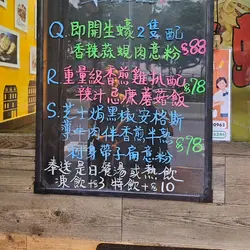 Q. 即開生蠔2隻配
香辣蒜蜆肉意粉 $88
R. 重量級香煎雞扒配
辣汁忌廉蘑菇飯 $78
S. 芝士焗黑椒安格斯
薄牛肉伴本菇半熟
刺身帶子扁意粉 $78
奉送是日餐湯或熱飲
凍飲+$3 特飲+$10